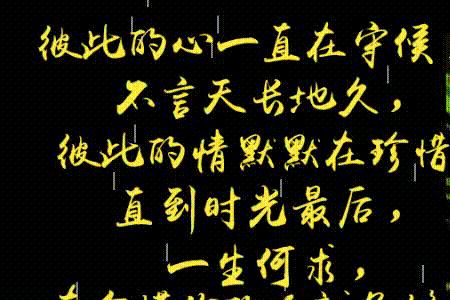 彼此的心一直在守候
不言天长地久，
彼此的情默默在珍惜
直到时光最后，
一生何求，